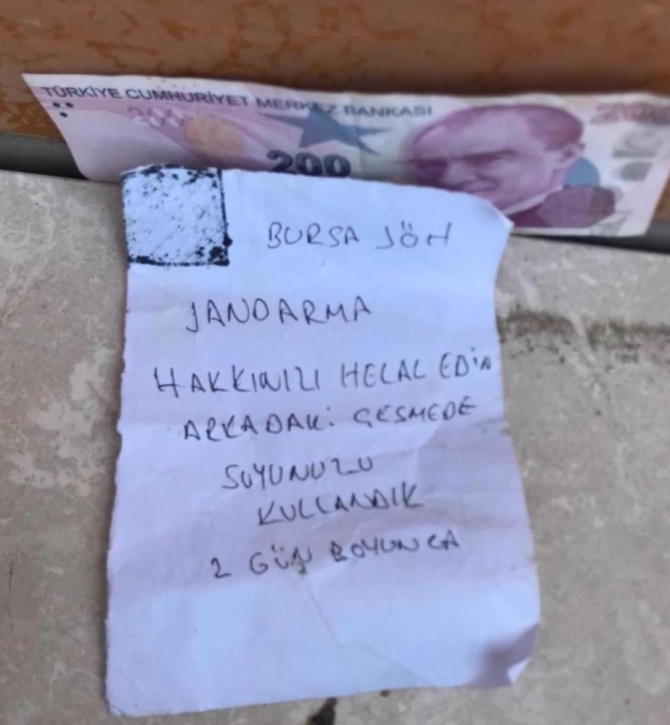 TÜRKİYE CUMHURİYET MERKEZ BANKASI
200
200
BURSA JÖH
JANDARMA
HAKKINIZI HELAL EDİN
ARKADAKİ ÇEŞMEDE
SUYUNUZU
KULLANDIK
2 GÜN BOYUNCA